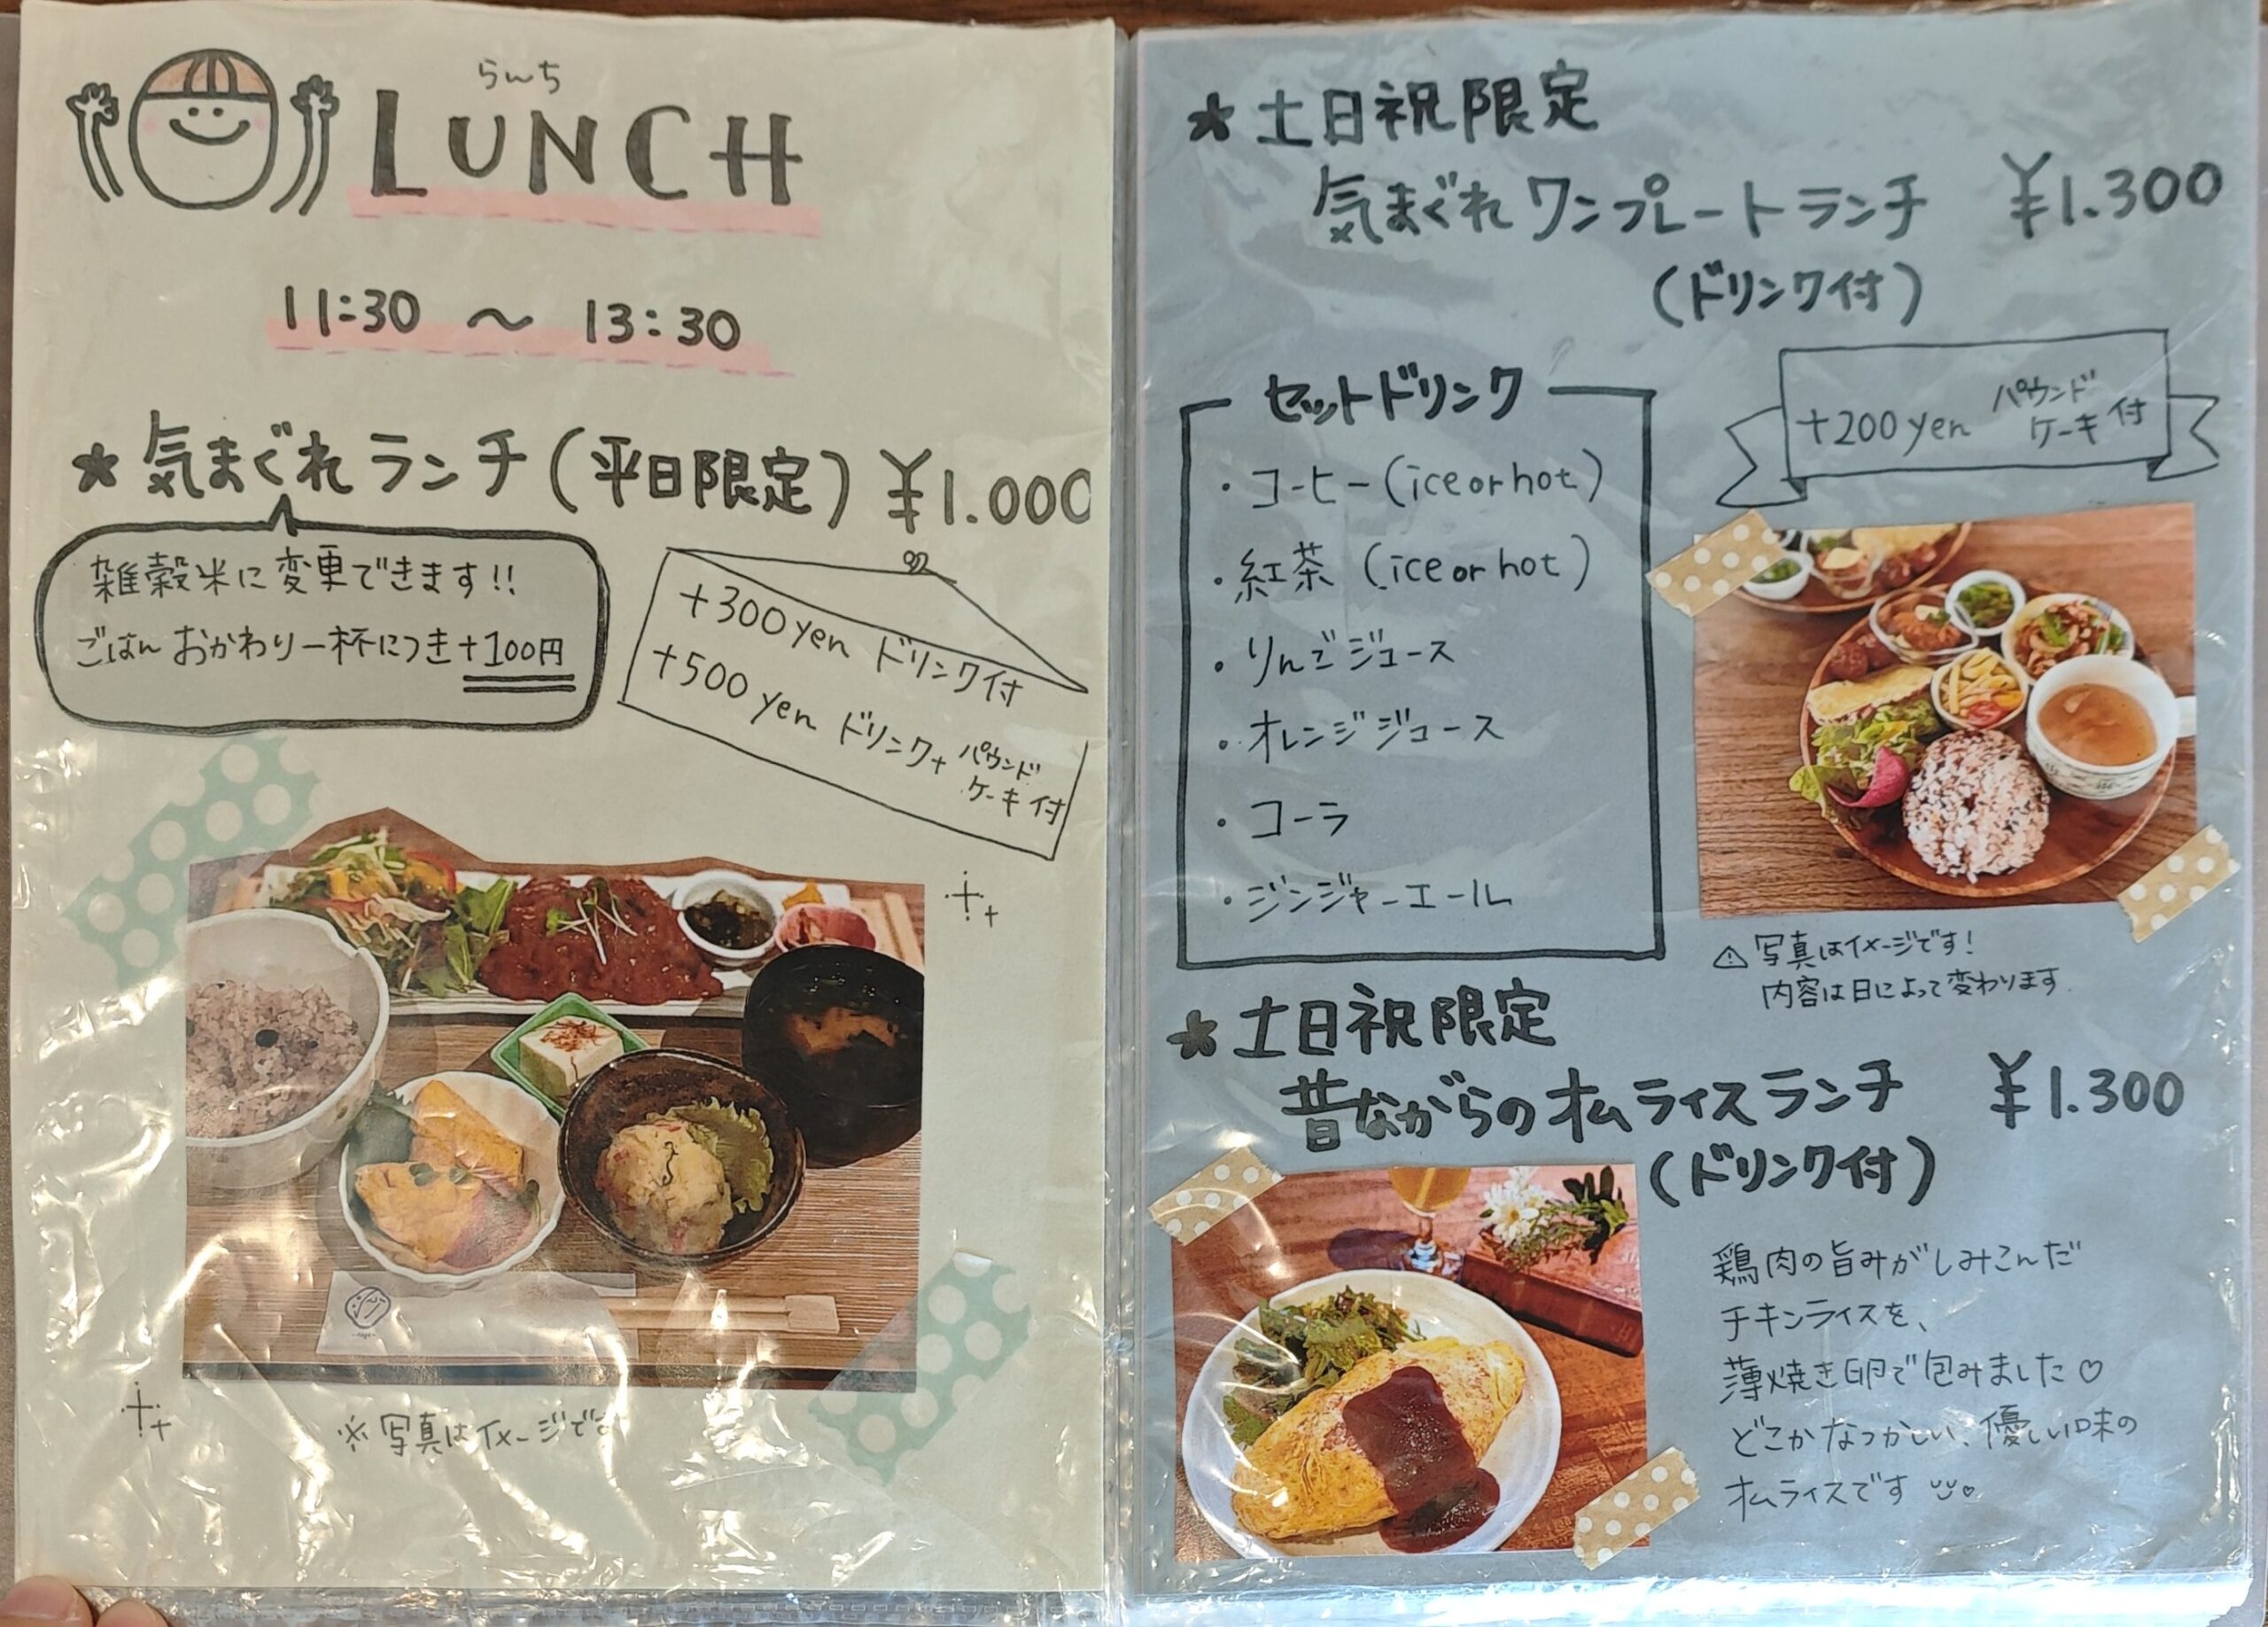 らんち
LUNCH
11:30 〜 13:30
★ 気まぐれランチ (平日限定) ¥1.000
雑穀米に変更できます!!
ごはんおかわり一杯につき+100円
+300yen ドリンク付
+500yen ドリンク+ パウンドケーキ付
※写真はイメージで
★ 土日祝限定
気まぐれワンプレートランチ ¥1.300
(ドリンク付)
+200yen パウンドケーキ付
セットドリンク
・コーヒー (ice or hot)
・紅茶 (ice or hot)
・りんごジュース
・オレンジジュース
・コーラ
・ジンジャーエール
⚠写真はイメージです!
内容は日によって変わります
★ 土日祝限定
昔ながらのオムライスランチ ¥1.300
(ドリンク付)
鶏肉の旨みがしみこんだ
チキンライスを、
薄焼き卵で包みました♡
どこかなつかしい、優しい味の
オムライスです